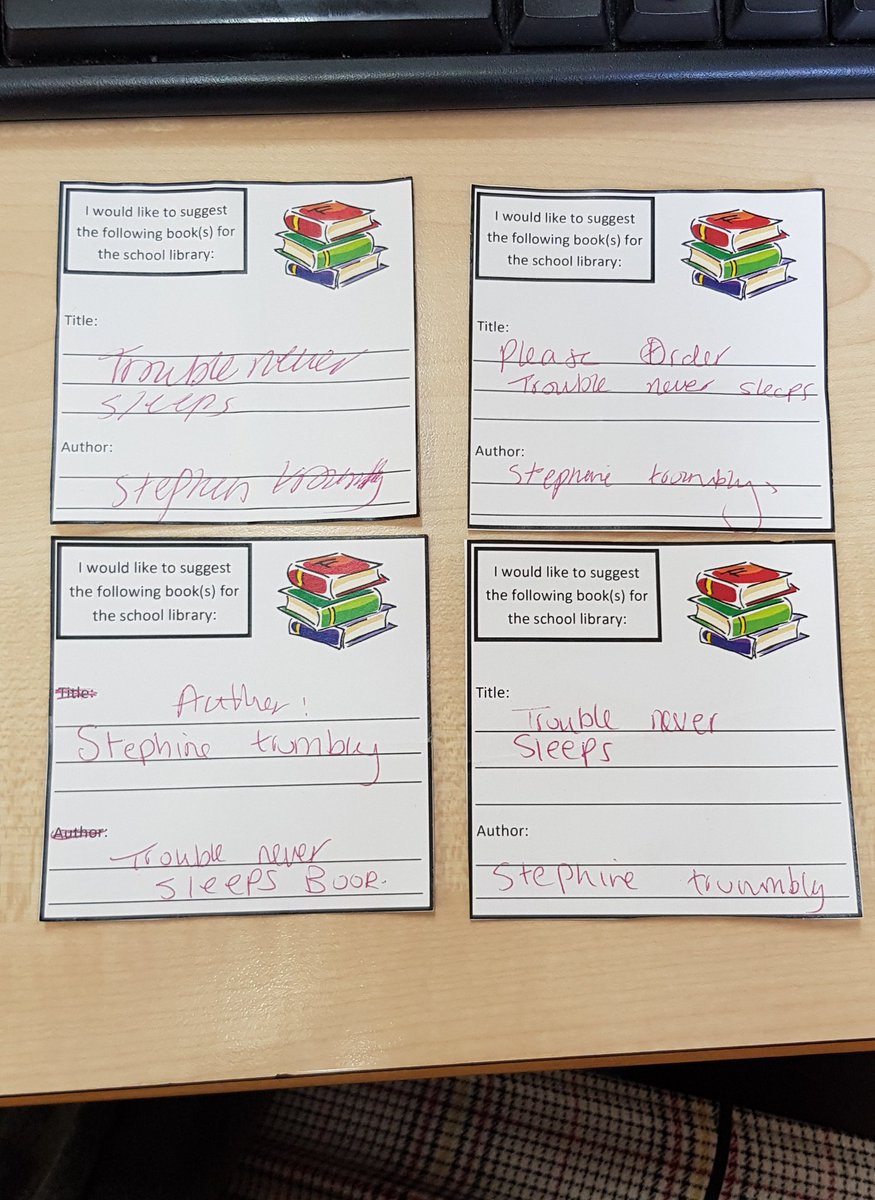 I would like to suggest
the following book(s) for
the school library:
Title:
Trouble never
sleeps
Author:
Stephen
I would like to suggest
the following book(s) for
the school library:
Title:
Please Order
Trouble never sleeps
Author:
Stephanie trombly
I would like to suggest
the following book(s) for
the school library:
Title:
Auther!
Stephine trumbly
Author:
Trouble never
sleeps Book.
I would like to suggest
the following book(s) for
the school library:
Title:
Trouble never
sleeps
Author:
Stephine trunmbly